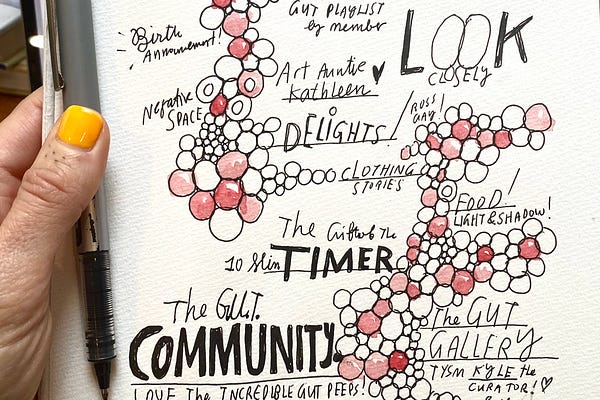 GUT PLAYLIST
by member
LOOK
CLOSELY
Birth
Announcement!
Art Auntie
Kathleen
Negative
SPACE
DELIGHTS!
ROSS
GAY!
CLOTHING
STORIES
FOOD!
LIGHT & SHADOW!
The Gift of the
10 Min TIMER
The G.U.T.
COMMUNITY.
LOVE The INCREDIBLE GUT PEEPS!
The GUT
GALLERY
TYSM KYLE the
CURATOR!